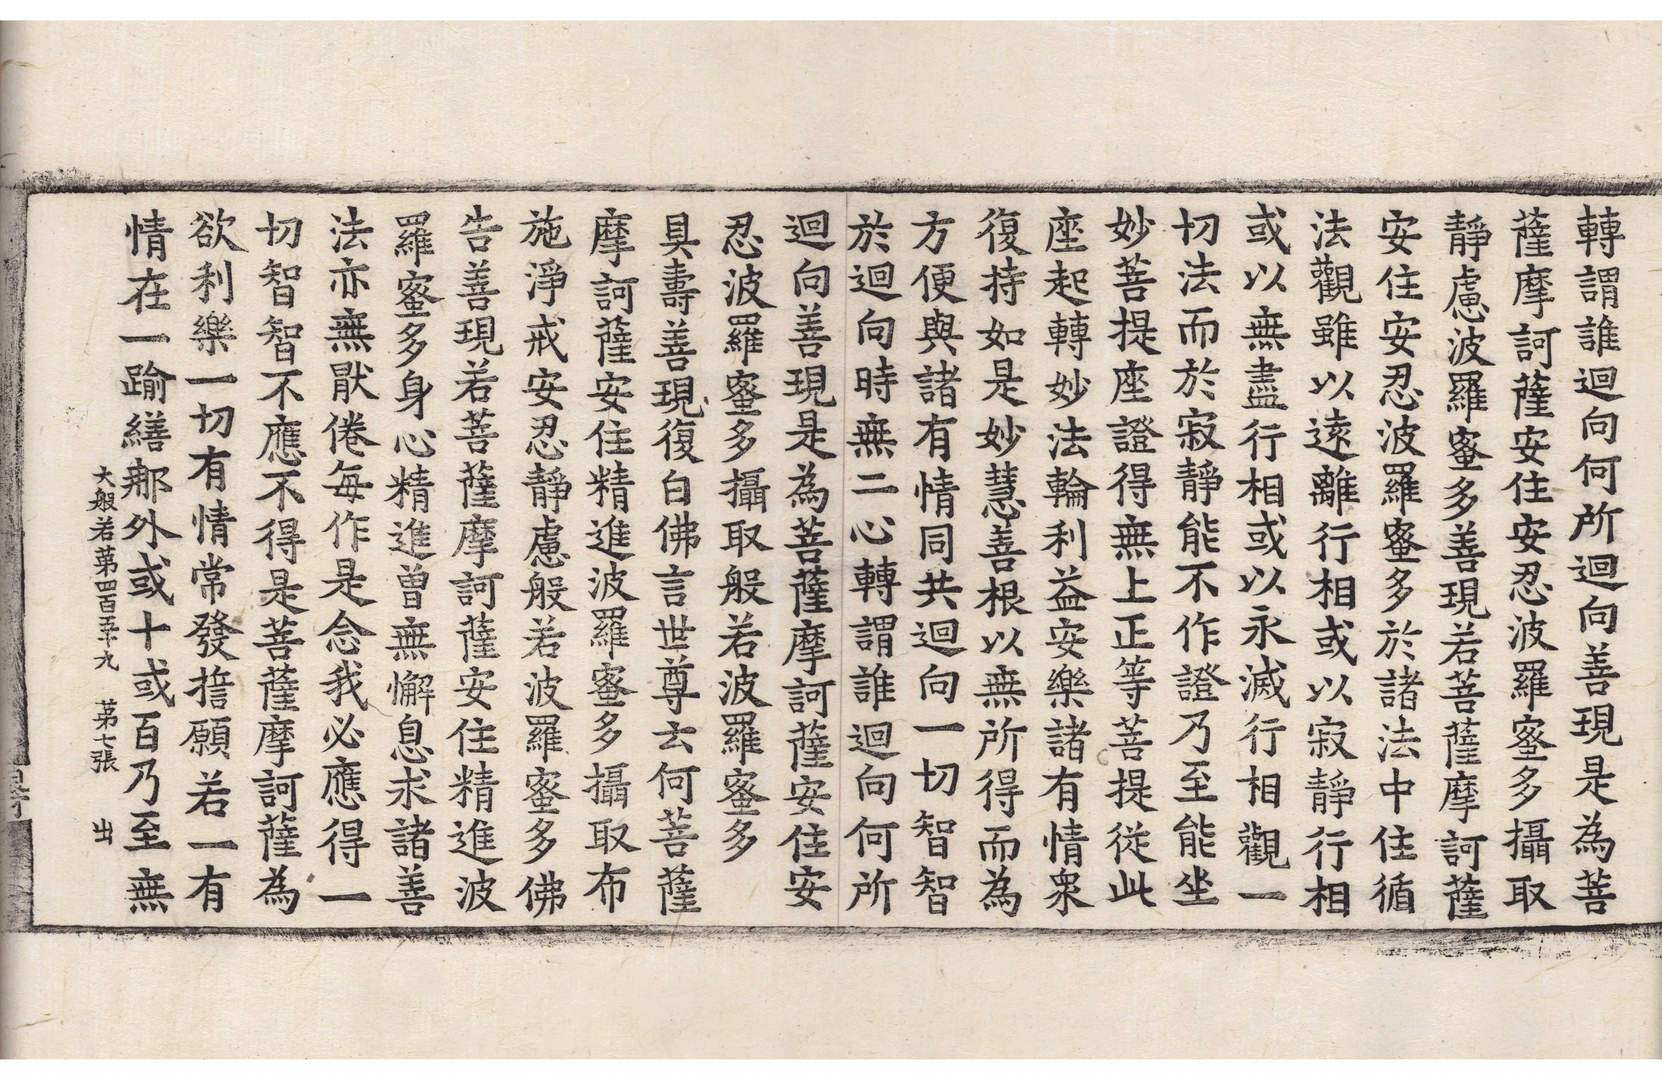 轉謂誰迴向何所迴向善現是為菩
薩摩訶薩安住安忍波羅蜜多攝取
靜慮波羅蜜多善現若菩薩摩訶薩
安住安忍波羅蜜多於諸法中住循
法觀雖以遠離行相或以寂靜行相
或以無盡行相或以永滅行相觀一
切法而於寂靜能不作證乃至能坐
妙菩提座證得無上正等菩提從此
座起轉妙法輪利益安樂諸有情衆
復持如是妙慧善根以無所得而為
方便與諸有情同共迴向一切智智
於迴向時無二心轉謂誰迴向何所
迴向善現是為菩薩摩訶薩安住安
忍波羅蜜多攝取般若波羅蜜多
具壽善現復白佛言世尊云何菩薩
摩訶薩安住精進波羅蜜多攝取布
施淨戒安忍靜慮般若波羅蜜多佛
告善現若菩薩摩訶薩安住精進波
羅蜜多身心精進曾無懈息求諸善
法亦無猒倦每作是念我必應得一
切智智不應不得是菩薩摩訶薩為
欲利樂一切有情常發誓願若一有
情在一踰繕那外或十或百乃至無
大般若第四百五十九 第七張 出